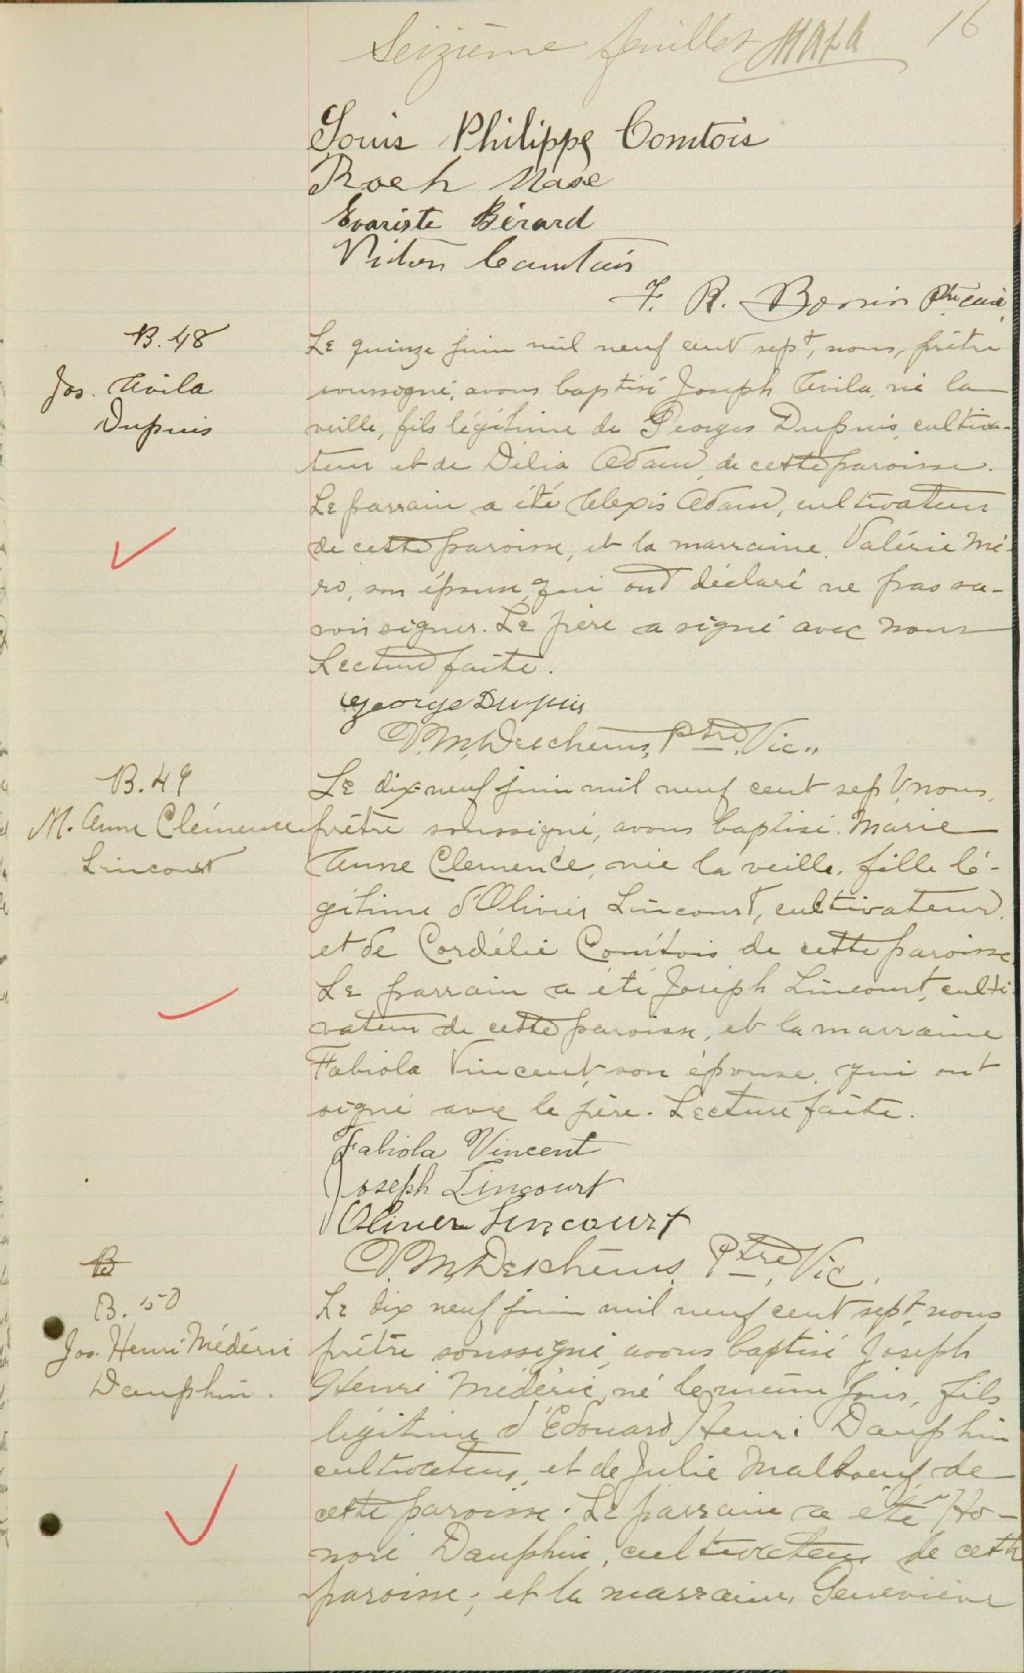 Seizième feuillet
16
Louis Philippe Comtois
Roch Masse
Evariste Bérard
Victor Comtois
F. R. Bonin Ptre curé
B. 48
Jos. Avila
Dupuis
Le quinze juin mil neuf cent sept, nous, prêtre
soussigné, avons baptisé Joseph Avila, né la
veille, fils légitime de Georges Dupuis, cultiva-
teur et de Délia Adam, de cette paroisse.
Le parrain a été Alexis Adam, cultivateur
de cette paroisse, et la marraine, Valérie Mi-
ro, son épouse, qui ont déclaré ne pas sa-
voir signer. Le père a signé avec nous
Lecture faite.
George Dupuis
Deschênes, Ptre Vic.
B. 49
M. Anne Clémence
Lincourt
Le dix-neuf juin mil neuf cent sept, nous,
prêtre soussigné, avons baptisé Marie
Anne Clemence, née la veille, fille lé-
gitime d'Olivier Lincourt, cultivateur,
et de Cordélie Comtois de cette paroisse.
Le parrain a été Joseph Lincourt, culti-
vateur de cette paroisse, et la marraine
Fabiola Vincent, son épouse, qui ont
signé avec le père. Lecture faite.
Fabiola Vincent
Joseph Lincourt
Olivier Lincourt
Deschênes, Ptre, Vic.
B
B. 50
Jos. Henri Médéric
Dauphin.
Le dix neuf juin mil neuf cent sept, nous
prêtre soussigné, avons baptisé Joseph
Henri Médéric, né le même jour, fils
légitime d'Edouard Henri Dauphin
cultivateur, et de Julie Malboeuf de
cette paroisse. Le parrain a été Ho-
noré Dauphin, cultivateur de cette
paroisse; et la marraine, Geneviève